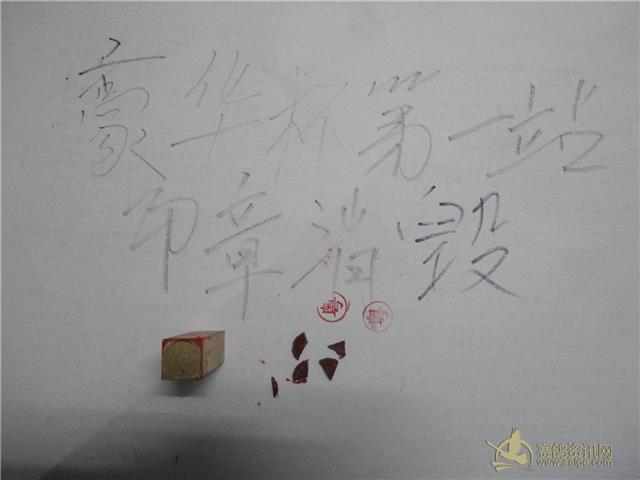 豪华杯第一站
印章消毁
赛鸽资讯网
www.saige.com